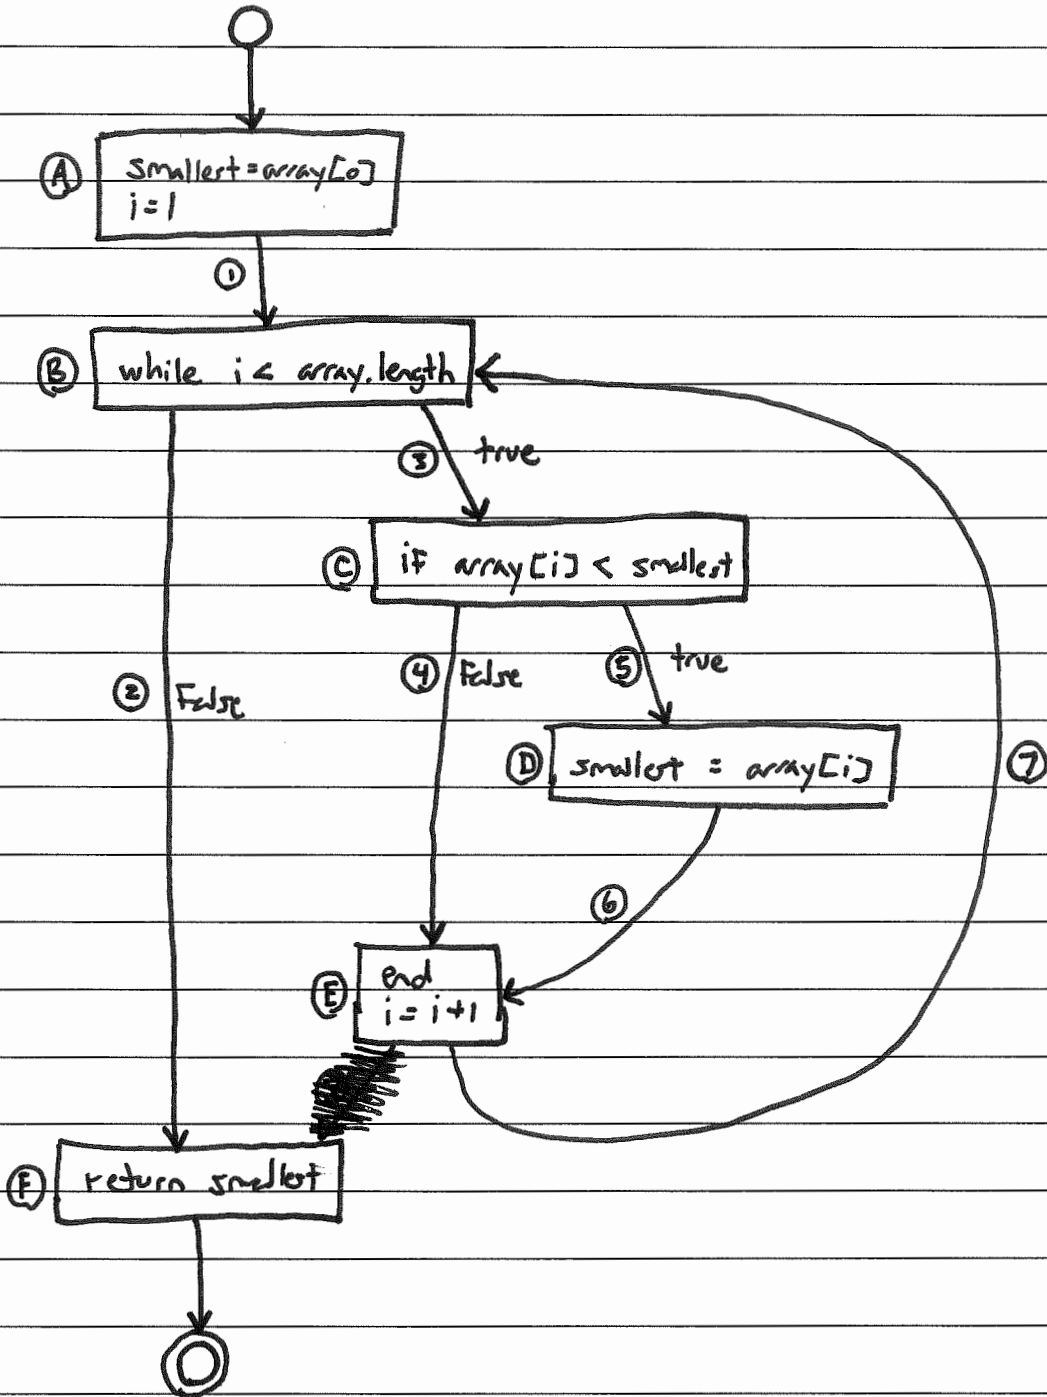 A
smallest=array[0]
i=1
1
B
while i < array.length
3
true
C
if array[i] < smallest
2
False
4
False
5
true
D
smallest = array[i]
7
6
E
end
i = i+1
F
return smallest